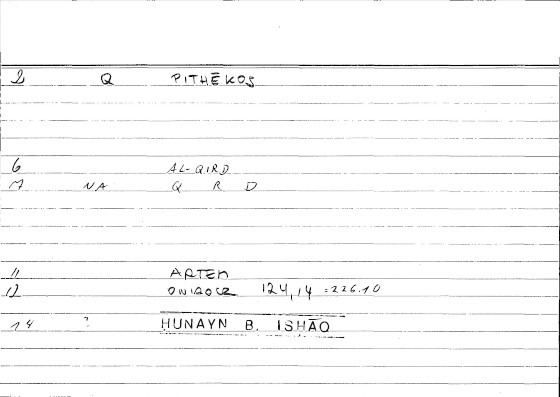 2 Q PITHĒKOS
6 AL-QIRD
7 NA Q R D
11 ARTEM
12 ONIROCR 124,14 =226.10
14 ? HUNAYN B. ISHĀQ